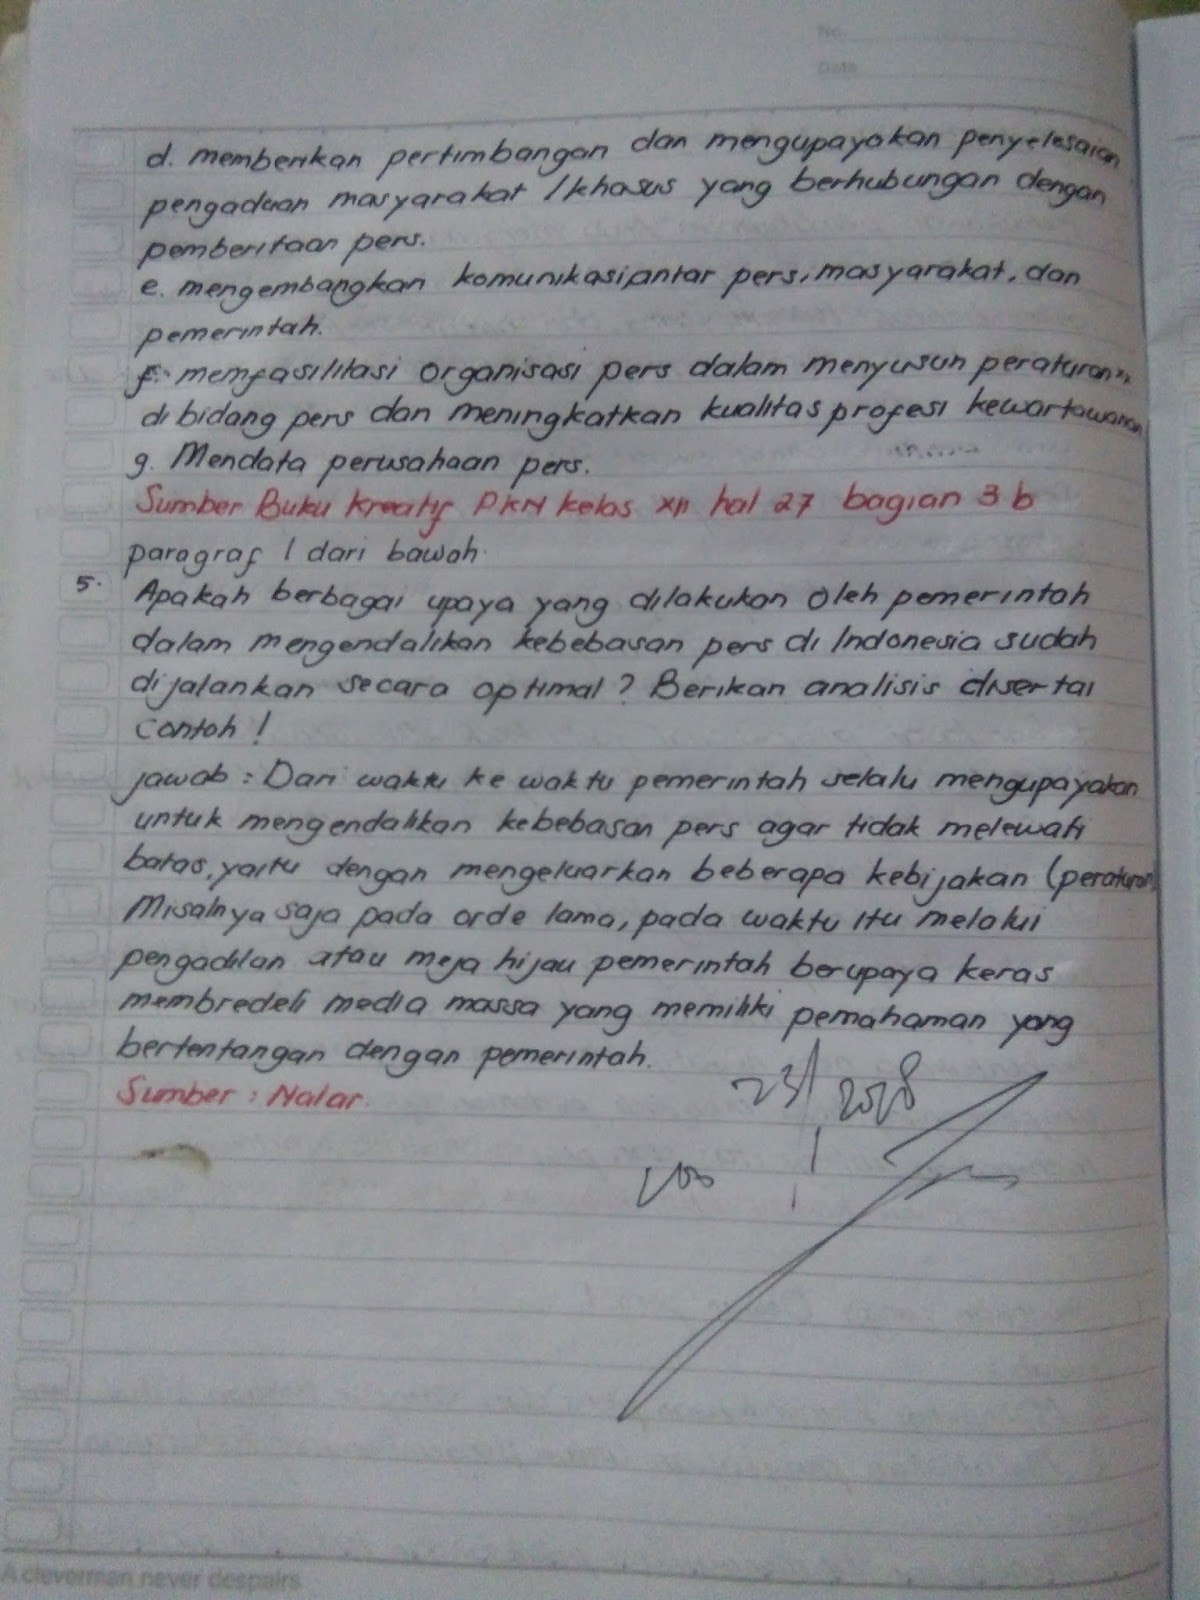 No
Date
d. memberikan pertimbangan dan mengupayakan penyelesaian
pengaduan masyarakat / khasus yang berhubungan dengan
pemberitaan pers.
e. mengembangkan komunikasi antar pers, masyarakat, dan
pemerintah.
f. memfasilitasi organisasi pers dalam menyusun peraturan"
di bidang pers dan meningkatkan kualitas profesi kewartawanan
g. Mendata perusahaan pers.
Sumber Buku Kreatif PKN kelas XII hal 27 bagian 3 b
paragraf 1 dari bawah.
5. Apakah berbagai upaya yang dilakukan oleh pemerintah
dalam mengendalikan kebebasan pers di Indonesia sudah
dijalankan secara optimal? Berikan analisis disertai
contoh!
jawab : Dari waktu ke waktu pemerintah selalu mengupayakan
untuk mengendalikan kebebasan pers agar tidak melewati
batas, yaitu dengan mengeluarkan beberapa kebijakan (peraturan)
Misalnya saja pada orde lama, pada waktu itu melalui
pengadilan atau meja hijau pemerintah berupaya keras
membredeli media massa yang memiliki pemahaman yang
bertentangan dengan pemerintah.
Sumber : Nalar.
23/
A cleverman never despairs